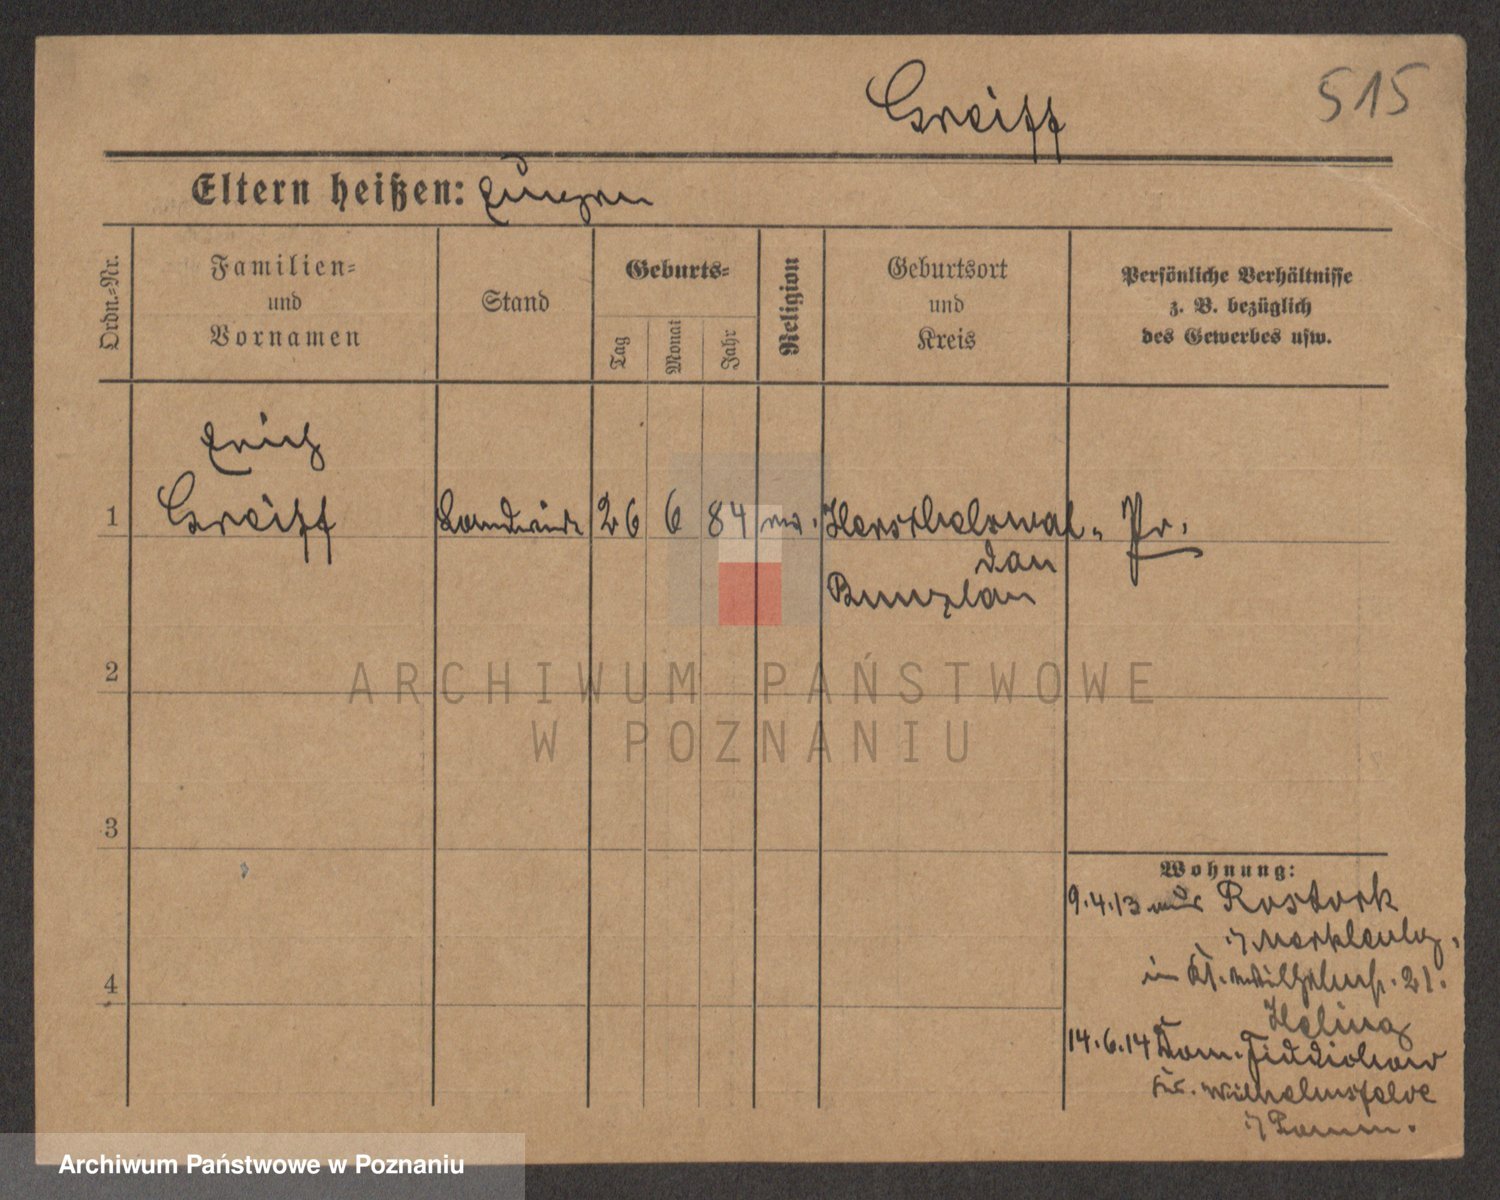 Greiff
515
Eltern heißen: Eugen
Ordn.-Nr.
Familien-
und
Vornamen
Stand
Geburts-
Tag
Monat
Jahr
Religion
Geburtsort
und
Kreis
Persönliche Verhältnisse
z. B. bezüglich
des Gewerbes usw.
Erich
1 Greiff Landwirt 26 6 84 ev. Herschelswal- Pr.
dau
Bunzlau
2
ARCHIWUM PAŃSTWOWE
W POZNANIU
3
4
Wohnung:
9.4.13 aus Rostock
i/Mecklenbg.
in Kl. 21.
14.6.14 Dom. Fiddichow
Kr. Wilhelmsfelde
i/Pomm.
Archiwum Państwowe w Poznaniu